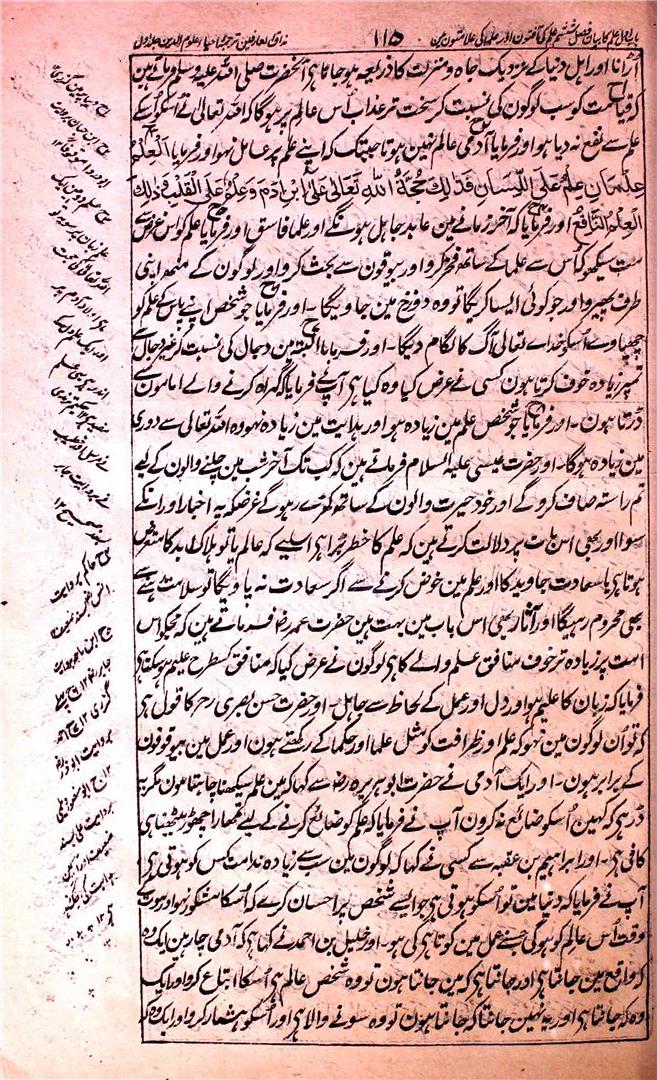 باب اول علم کا بیان فصل ششم علم کی آفتوں اور علما کی علامتوں میں
۱۱۵
مذاق العارفین ترجمہ احیاء علوم الدین جلد اول
اڑانا اور اہل دنیا کے نزدیک جاہ و منزلت کا ذریعہ ہو جاتا ہی آنحضرت صلی اللہ علیہ وسلم فرماتے ہین
کہ قیامت کو سب لوگون کی نسبت کر سخت تر عذاب اُس عالم پر ہو گا کہ اللہ تعالیٰ نے اسکو اسکے
علم سے نفع نہ دیا ہو اور فرمایا آدمی عالم نہین ہوتا جبتک کہ اپنے علم پر عامل نہو اور فرمایا اَلْعِلْمُ
عِلْمَانِ عِلْمٌ عَلَی اللِّسَانِ فَذٰلِکَ حُجَّۃُ اللّٰہِ تَعَالٰی عَلَی ابْنِ اٰدَمَ وَعِلْمٌ عَلَی الْقَلْبِ فَذٰلِکَ
الْعِلْمُ النَّافِعُ اور فرمایا کہ آخر زمانے مین عابد جاہل ہونگے اور علما فاسق اور فرمایا علم کو اس غرض سے
مت سیکھو کہ اُس سے علما کے ساتھ فخر کرو اور بیوقوفون سے بحث کرو اور لوگون کے منھ اپنی
طرف پھیرو اور جو کوئی ایسا کریگا تو وہ دوزخ مین جاویگا۔ اور فرمایا جو شخص اپنے پاس کے علم کو
چھپاوے اُسکو خداے تعالیٰ آگ کا لگام دیگا۔ اور فرمایا البتہ مین دجال کی نسبت کر غیر دجال سے
تمپر زیادہ خوف کرتا ہون کسی نے عرض کیا وہ کیا ہی آپنے فرمایا کہ گمراہ کرنے والے امامون سے
ڈرتا ہون۔ اور فرمایا جو شخص علم مین زیادہ ہو اور ہدایت مین زیادہ نہو وہ اللہ تعالیٰ سے دوری
مین زیادہ ہو گا۔ اور حضرت عیسیٰ علیہ السلام فرماتے ہین کہ کب تک آخر شب مین چلنے والون کے لیے
تم راستہ صاف کروگے اور خود حیرت والون کے ساتھ کھڑے رہو گے غرضکہ یہ اخبار اور انکے
سوا اور بھی اس بات پر دلالت کرتے ہین کہ علم کا خطر بڑا ہی اسلیے کہ عالم یا تو ہلاک ابد کا متعرض
ہوتا ہی یا سعادت جاوید کا اور علم مین خوض کرنے سے اگر سعادت نہ پاویگا تو سلامت سے
بھی محروم رہیگا اور آثار بھی اس باب مین بہت ہین حضرت عمر رض فرماتے ہین کہ مجکو اس
امت پر زیادہ تر خوف منافق علم والے کا ہی لوگون نے عرض کیا کہ منافق کسطرح علیم ہو سکتا ہی
فرمایا کہ زبان کا علیم ہو اور دل اور عمل کے لحاظ سے جاہل۔ اور حضرت حسن بصری رح کا قول ہی
کہ تو اُن لوگون مین نہو کہ علم اور ظرافت کو مثل علما اور حکما کے رکھتے ہون اور عمل مین بیوقوفون
کے برابر ہون۔ اور ایک آدمی نے حضرت ابو ہریرہ رض سے کہا کہ مین علم سیکھنا چاہتا ہون مگر یہ
ڈر ہی کہ کہین اُسکو ضائع نہ کرون آپ نے فرمایا کہ علم کو ضائع کرنے کے لیے تمھارا چھوڑ بیٹھنا ہی
کافی ہی۔ اور ابراہیم بن عقبہ سے کسی نے کہا کہ لوگون مین سب سے زیادہ ندامت کس کو ہوتی ہی
آپ نے فرمایا کہ دنیا مین تو اُسکو ہوتی ہی جو ایسے شخص پر احسان کرے کہ اُسکا مشکور نہو اور موت کے
وقت اُس عالم کو ہوگی جسنے عمل مین کوتاہی کی ہو۔ اور خلیل بن احمد نے کہا ہی کہ آدمی چار ہین ایک وہ
کہ واقع مین جانتا ہی اور جانتا ہی کہ مین جانتا ہون تو وہ شخص عالم ہی اُسکا اتباع کرو اور ایک
وہ کہ جانتا ہی اور یہ نہین جانتا کہ جانتا ہون تو وہ سونے والا ہی اور اُسکو ہشیار کرو اور ایک وہ کہ